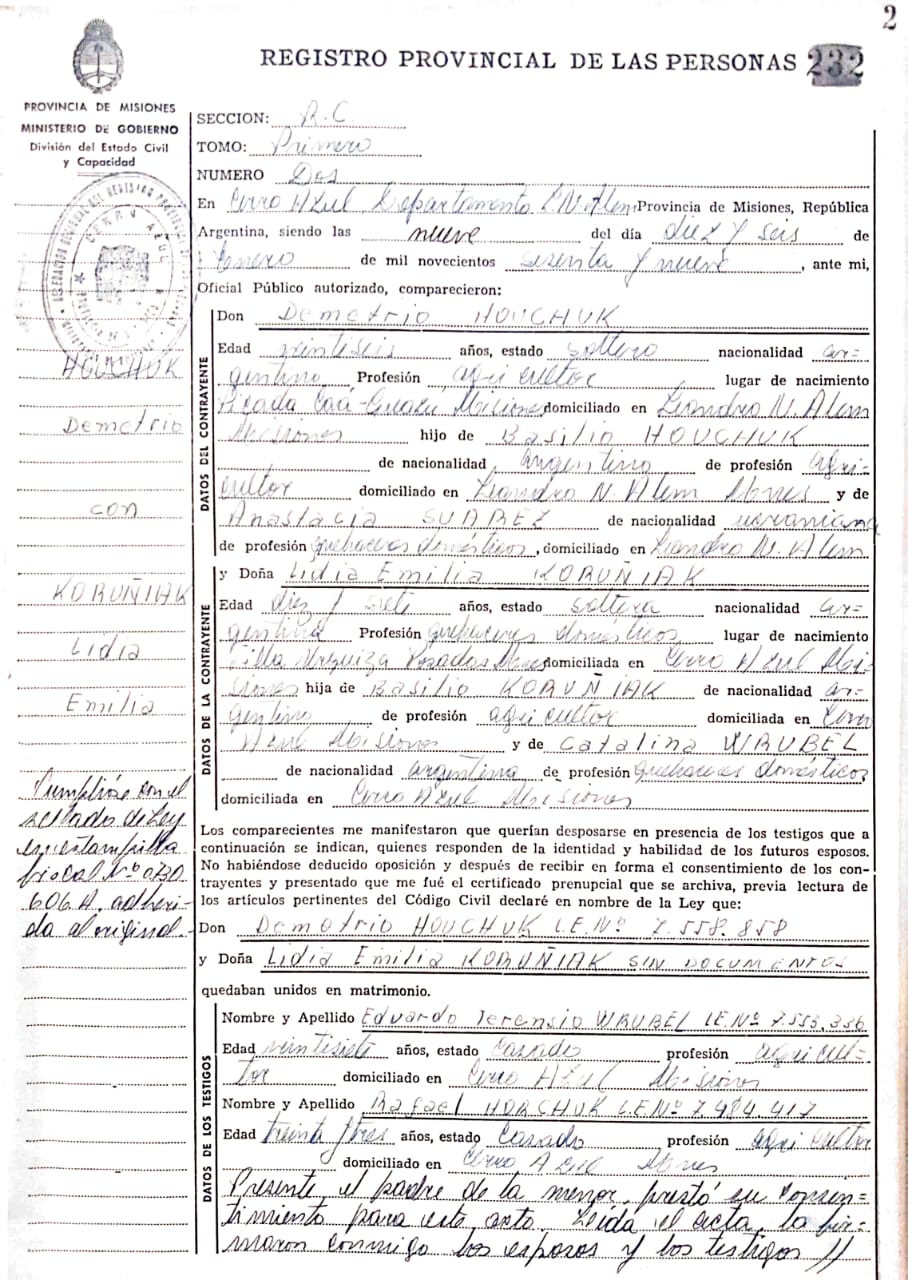 2
REGISTRO PROVINCIAL DE LAS PERSONAS 232
PROVINCIA DE MISIONES
MINISTERIO DE GOBIERNO
División del Estado Civil
y Capacidad
SECCION: R.C.
TOMO: Primero
NUMERO Dos
En Cerro Azul Departamento L.N. Alem Provincia de Misiones, República
Argentina, siendo las nueve del día diez y seis de
Enero de mil novecientos sesenta y nueve, ante mi,
Oficial Público autorizado, comparecieron:
HOUCHUK
Demetrio
con
KORUÑIAK
Lidia
Emilia
Cumplióse con el
sellado de Ley
en estampilla
fiscal Nº 030
606 A. adheri-
da al original.-
DATOS DEL CONTRAYENTE
Don Demetrio HOUCHUK
Edad veintiseis años, estado soltero nacionalidad ar=
gentino Profesión agricultor lugar de nacimiento
Picada Caá-Guazú Misiones domiciliado en Leandro N. Alem
Misiones hijo de Basilio HOUCHUK
de nacionalidad argentino de profesión agri-
cultor domiciliado en Leandro N. Alem Mnes y de
Anastacia SUAREZ de nacionalidad ucraniana
de profesión quehaceres domésticos, domiciliado en Leandro N. Alem
DATOS DE LA CONTRAYENTE
y Doña Lidia Emilia KORUÑIAK
Edad diez y siete años, estado soltera nacionalidad ar=
gentina Profesión quehaceres domésticos lugar de nacimiento
Villa Urquiza Posadas Mnes domiciliada en Cerro Azul Mi-
siones hija de Basilio KORUÑIAK de nacionalidad ar=
gentino de profesión agricultor domiciliada en Cerro
Azul Misiones y de Catalina WRUBEL
de nacionalidad argentina de profesión quehaceres domésticos
domiciliada en Cerro Azul Misiones
Los comparecientes me manifestaron que querían desposarse en presencia de los testigos que a
continuación se indican, quienes responden de la identidad y habilidad de los futuros esposos.
No habiéndose deducido oposición y después de recibir en forma el consentimiento de los con-
trayentes y presentado que me fué el certificado prenupcial que se archiva, previa lectura de
los artículos pertinentes del Código Civil declaré en nombre de la Ley que:
Don Demetrio HOUCHUK L.E. Nº 7.558.858
y Doña Lidia Emilia KORUÑIAK SIN DOCUMENTOS
quedaban unidos en matrimonio.
DATOS DE LOS TESTIGOS
Nombre y Apellido Eduardo Terensio WRUBEL LE.Nº 7.553.336
Edad veintisiete años, estado casado profesión agricul=
tor domiciliado en Cerro Azul Misiones
Nombre y Apellido Rafael HORCHUK L.E.Nº 7.484.417
Edad treinta y tres años, estado casado profesión agricultor
domiciliado en Cerro Azul Mnes
Presente el padre de la menor, prestó su consen=
timiento para este acto. Leída el acta, la fir=
maron conmigo los esposos y los testigos //